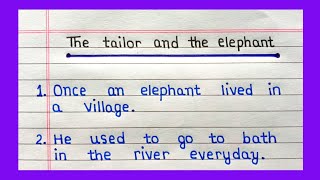 The tailor and the elephant
1. Once an elephant lived in
a village.
2. He used to go to bath
in the river everyday.